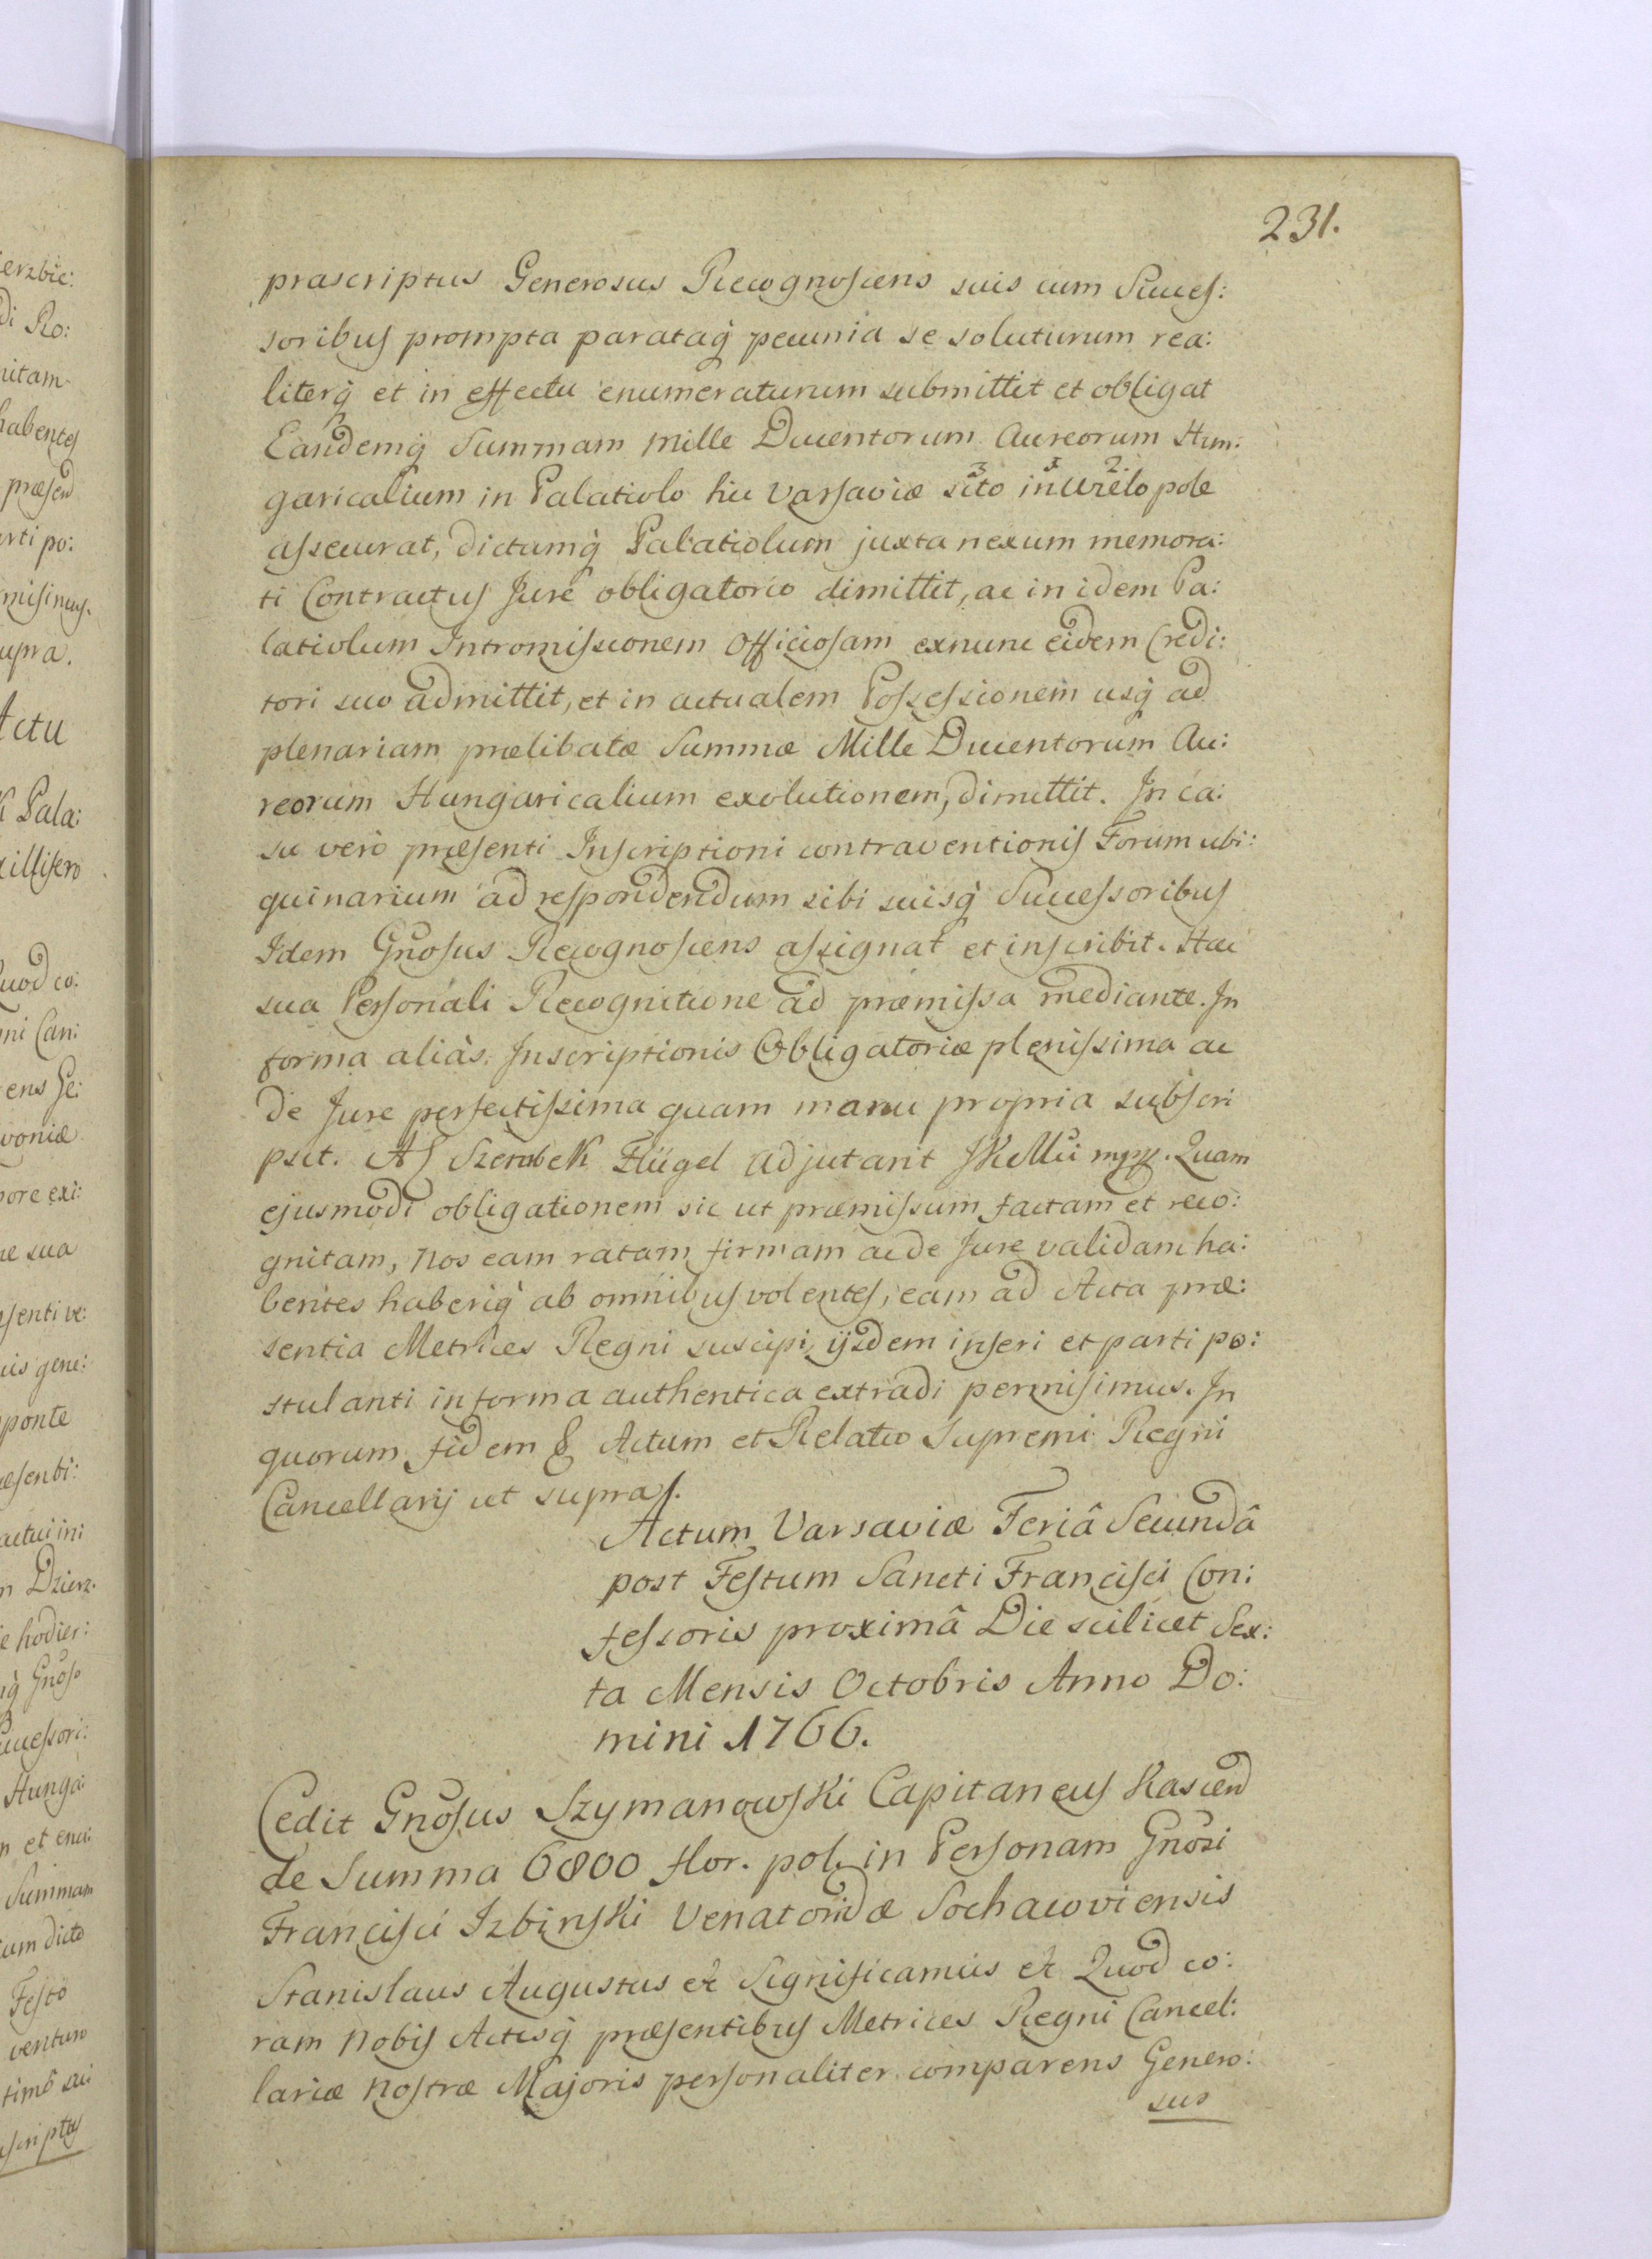 231.
præscriptus Generosus Recognoscens suis cum Succes:
soribus prompta parataq̀ pecunia se soluturum rea:
literq̀ et in effectu enumeraturum submittit et obligat
Eandemq̀ Summam Mille Ducentorum Aureorum Hun:
garicalium in Palatiolo hic Varsaviæ sito in Wielopole
assecurat, dictumq̀ Palatiolum juxta nexum memora:
ti Contractus Jure obligatorio dimittit, ac in idem Pa:
latiolum Intromissionem Officiosam exnunc eidem Credi:
tori suo admittit, et in actualem Possessionem usq̀ ad
plenariam prælibatæ Summæ Mille Ducentorum Au:
reorum Hungaricalium exolutionem, dimittit. In ca:
su vero præsenti Inscriptioni contraventionis Forum ubi:
quinarium ad respondendum sibi suisq̀ Successoribus
Idem Gnosus Recognoscens assignat et inscribit. Hac
sua Personali Recognitione ad præmissa mediante. In
forma aliàs Inscriptionis Obligatoriæ plenissima ac
de Jure perfectissima quam manu propria subscri
psit. AS Szembek Flügel Adjutant JKMci mpp. Quam
ejusmodi obligationem sic ut præmissum factam et reco:
gnitam, Nos eam ratam firmam ac de Jure validam ha:
bentes haberiq̀ ab omnibus volentes, eam ad Acta præ:
sentia Metrices Regni suscipi, ijsdem inseri et parti po:
stulanti in forma authentica extradi permisimus. In
quorum fidem & Actum et Relatio Supremi Regni
Cancellarij ut supra.
Actum Varsaviæ Feriâ Secundâ
post Festum Sancti Francisci Con:
fessoris proximâ Die scilicet Sex:
ta Mensis Octobris Anno Do:
mini 1766.
Cedit Gnosus Szymanowski Capitaneus Kascen
de Summa 6800 flor. pol. in Personam Gnosi
Francisci Izbinski Venatoridæ Sochacoviensis
Stanislaus Augustus & Significamus & Quod co:
ram Nobis Actisq̀ præsentibus Metrices Regni Cancel:
lariæ Nostræ Majoris personaliter comparens Genero:
sus